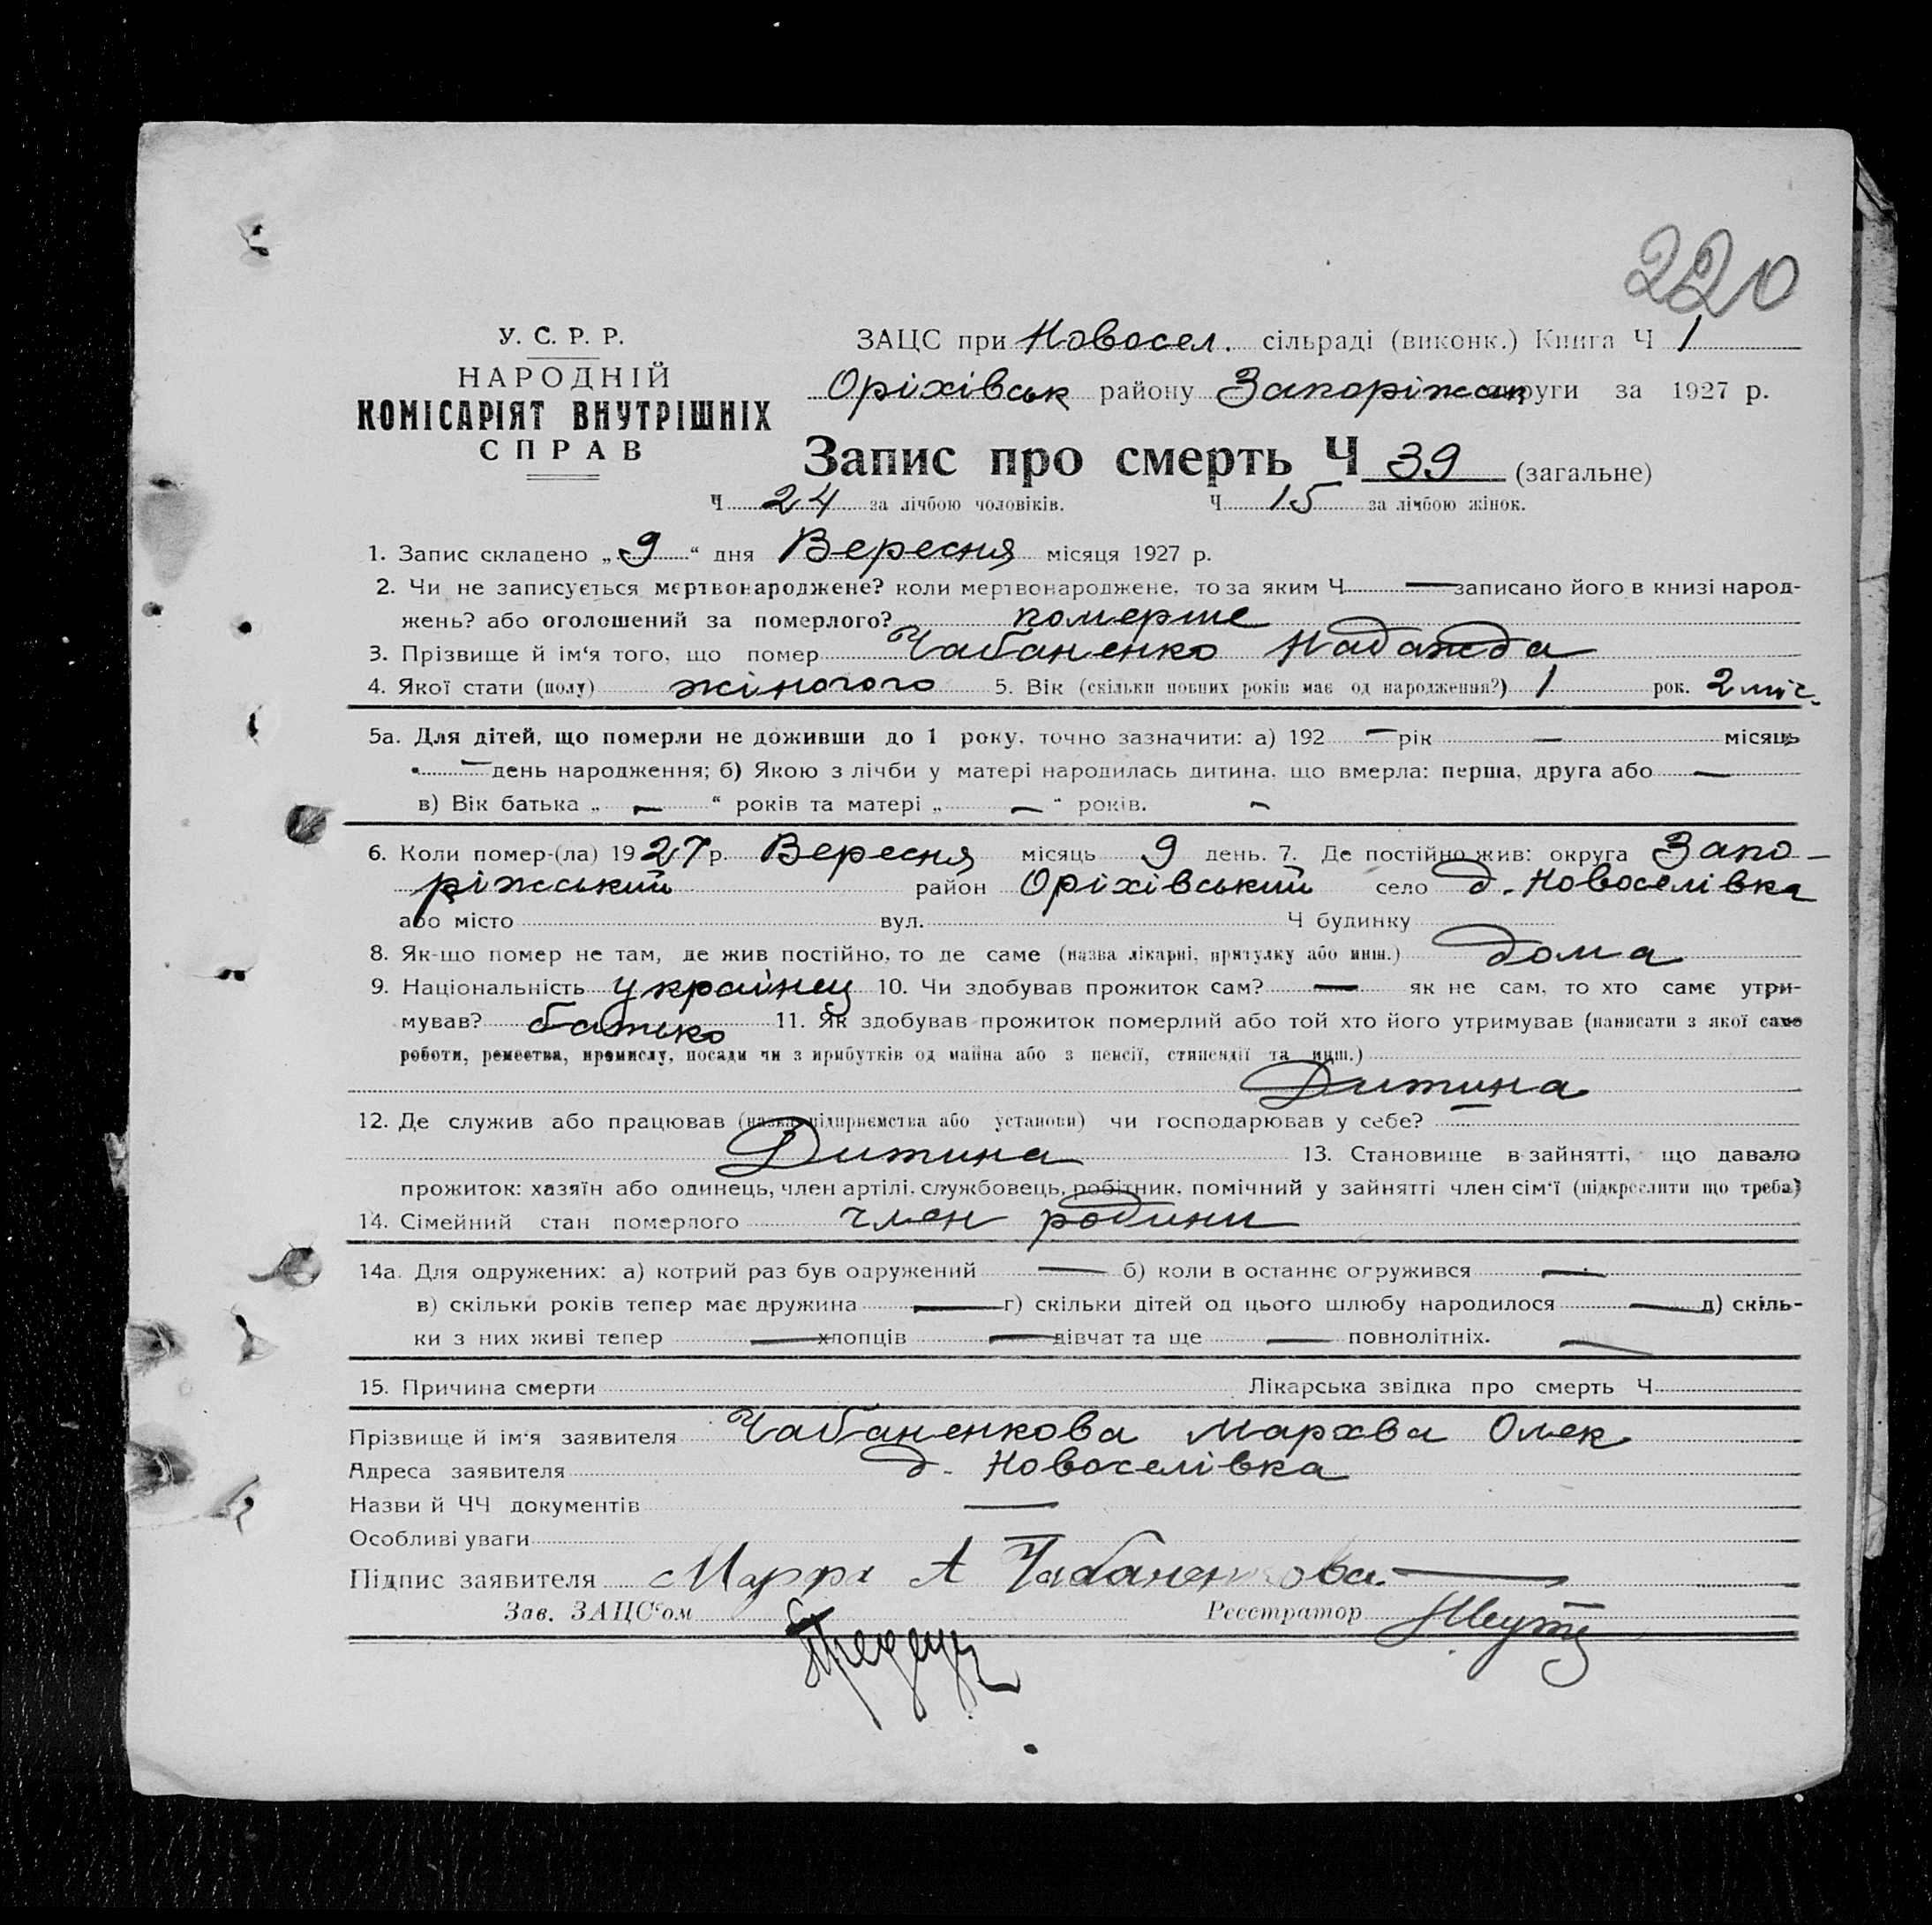 220
У. С. Р. Р.
НАРОДНІЙ
КОМІСАРІЯТ ВНУТРІШНІХ
СПРАВ
ЗАЦС при Новосел. сільраді (виконк.) Книга Ч 1
Оріхівськ району Запоріжськ округи за 1927 р.
Запис про смерть Ч 39 (загальне)
Ч 24 за лічбою чоловіків. Ч 15 за лічбою жінок.
1. Запис складено „9“ дня Вересня місяця 1927 р.
2. Чи не записується мертвонароджене? коли мертвонароджене, то за яким Ч — записано його в книзі народ-
жень? або оголошений за померлого? померше
3. Прізвище й ім‘я того, що помер Чабаненко Надажда
4. Якої стати (полу) жіночого 5. Вік (скільки повних років має од народження?) 1 рок. 2 міс.
5а. Для дітей, що померли не доживши до 1 року, точно зазначити: а) 192 — рік — місяць
— день народження; б) Якою з лічби у матері народилась дитина, що вмерла: перша, друга або —
в) Вік батька „ — “ років та матері „ — “ років. —
6. Коли помер-(ла) 1927 р. Вересня місяць 9 день. 7. Де постійно жив: округа Запо-
ріжський район Оріхівський село д. Новоселівка
або місто вул. Ч будинку
8. Як-що помер не там, де жив постійно, то де саме (назва лікарні, притулку або инш.) дома
9. Національність українец 10. Чи здобував прожиток сам? — як не сам, то хто саме утри-
мував? батько 11. Як здобував прожиток померлий або той хто його утримував (написати з якої саме
роботи, ремества, промислу, посади чи з прибутків од майна або з пенсії, стипендії та инш.)
Дитина
12. Де служив або працював (назва підприємства або установи) чи господарював у себе? —
Дитина 13. Становище в зайнятті, що давало
прожиток: хазяїн або одинець, член артілі, службовець, робітник, помічний у зайнятті член сім‘ї (підкреслити що треба)
14. Сімейний стан померлого член родини
14а. Для одружених: а) котрий раз був одружений — б) коли в останнє огружився —
в) скільки років тепер має дружина — г) скільки дітей од цього шлюбу народилося — д) скіль-
ки з них живі тепер — хлопців — дівчат та ще — повнолітніх. —
15. Причина смерти Лікарська звідка про смерть Ч
Прізвище й ім‘я заявителя Чабаненкова Мархва Олек
Адреса заявителя д. Новоселівка
Назви й ЧЧ документів —
Особливі уваги
Підпис заявителя Марфа А Чабаненкова. —
Зав. ЗАЦС‘ом Реєстратор